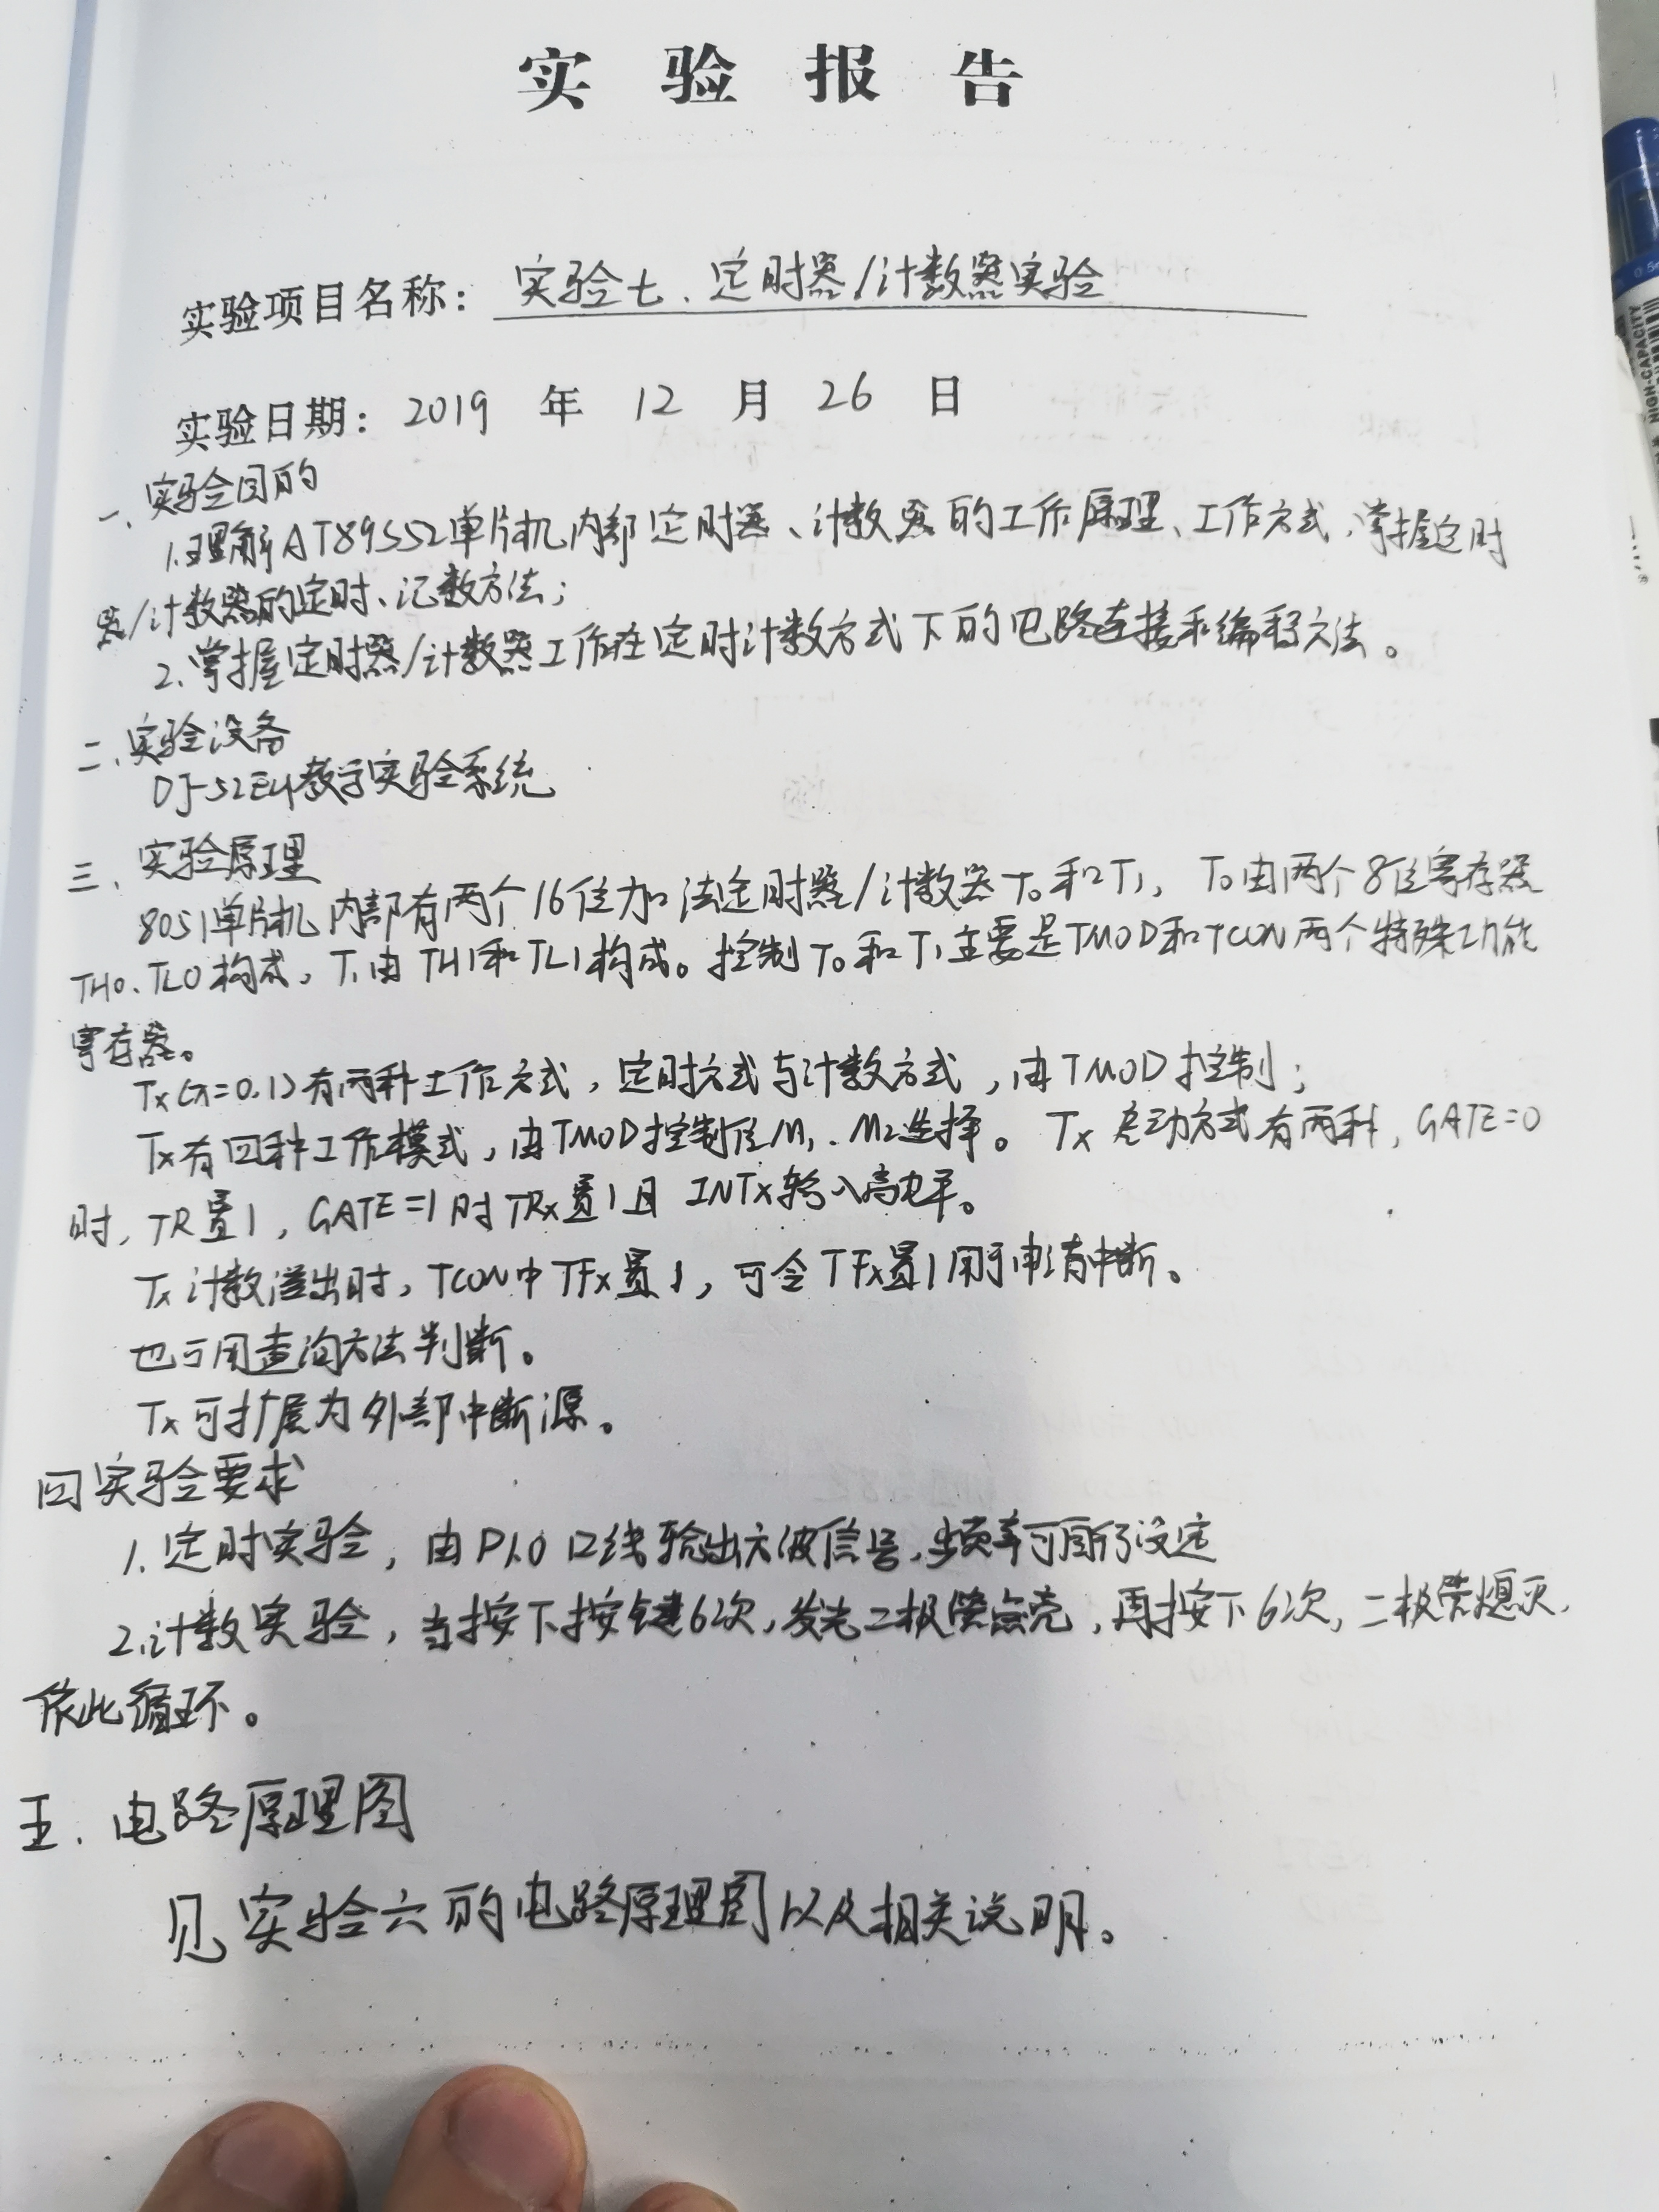 实验报告
实验项目名称：实验七、定时器/计数器实验
实验日期：2019年12月26日
一、实验目的
1.理解AT89S52单片机内部定时器、计数器的工作原理、工作方式，掌握定时
器/计数器的定时、记数方法；
2、掌握定时器/计数器工作在定时计数方式下的电路连接和编程方法。
二、实验设备
DJ-52E4教学实验系统
三、实验原理
8051单片机内部有两个16位加法定时器/计数器T0和T1，T0由两个8位寄存器
TH0、TL0构成，T1由TH1和TL1构成。控制T0和T1主要是TMOD和TCON两个特殊功能
寄存器。
Tx(x=0.1)有两种工作方式，定时方式与计数方式，由TMOD控制；
Tx有四种工作模式，由TMOD控制位M1、M2选择。Tx启动方式有两种，GATE=0
时，TR置1，GATE=1时TRx置1且INTx输入高电平。
Tx计数溢出时，TCON中TFx置1，可令TFx置1用于申请中断。
也可用查询方法判断。
Tx可扩展为外部中断源。
四实验要求
1.定时实验，由P1.0口线输出方波信号，频率可自行设定
2.计数实验，当按下按键6次，发光二极管点亮，再按下6次，二极管熄灭，
依此循环。
五.电路原理图
见实验六的电路原理图以及相关说明。
0.5
HIGH-CAPACITY